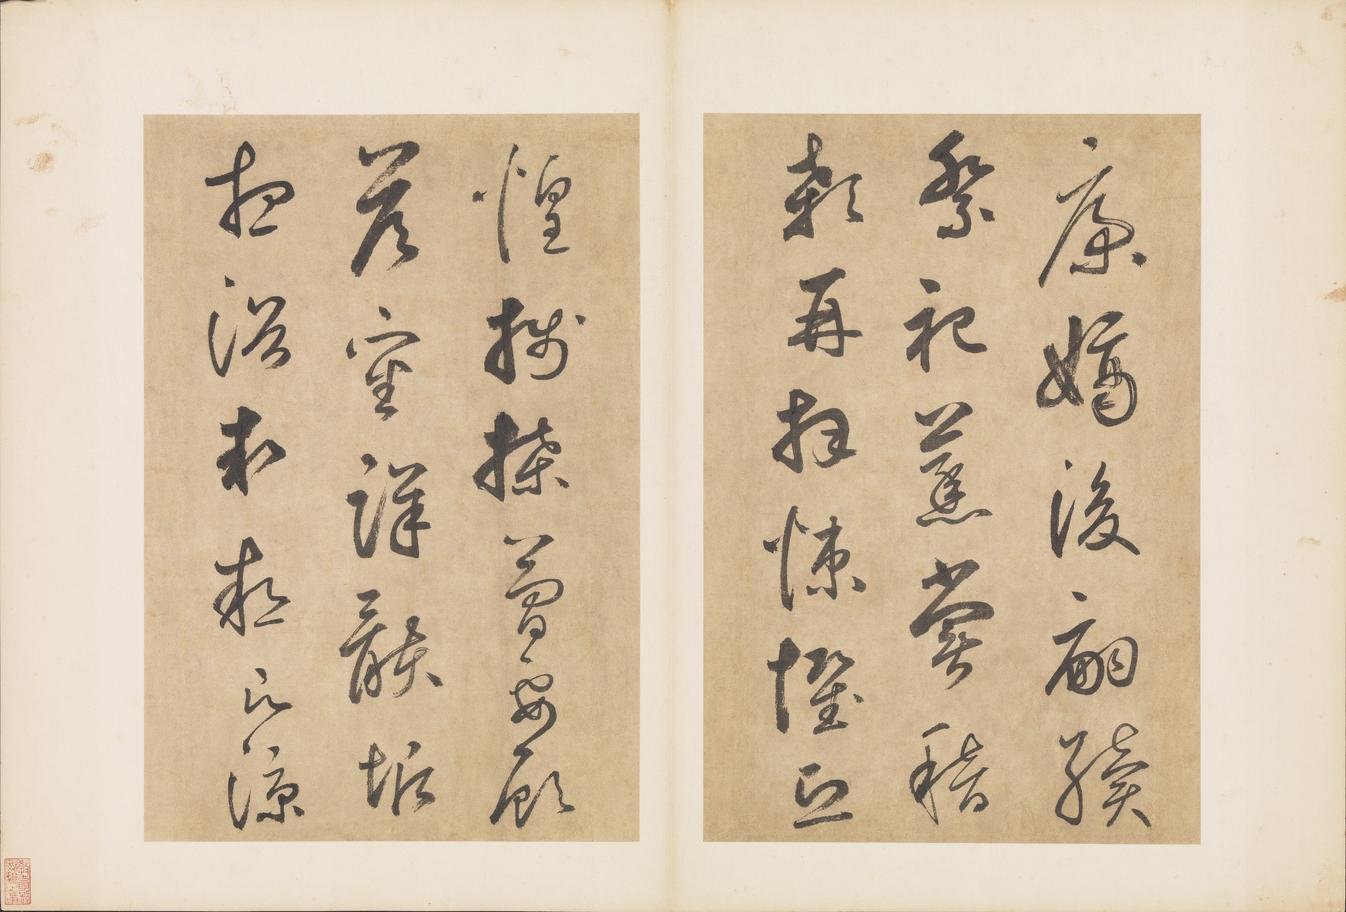 康嫡後嗣續
祭祀蒸嘗稽
顙再拜悚懼恐
惶牋牒簡要顧
答審詳骸垢
想浴執熱願涼